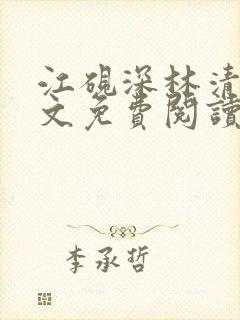 江硯深林清
文免費閱讀
李承哲